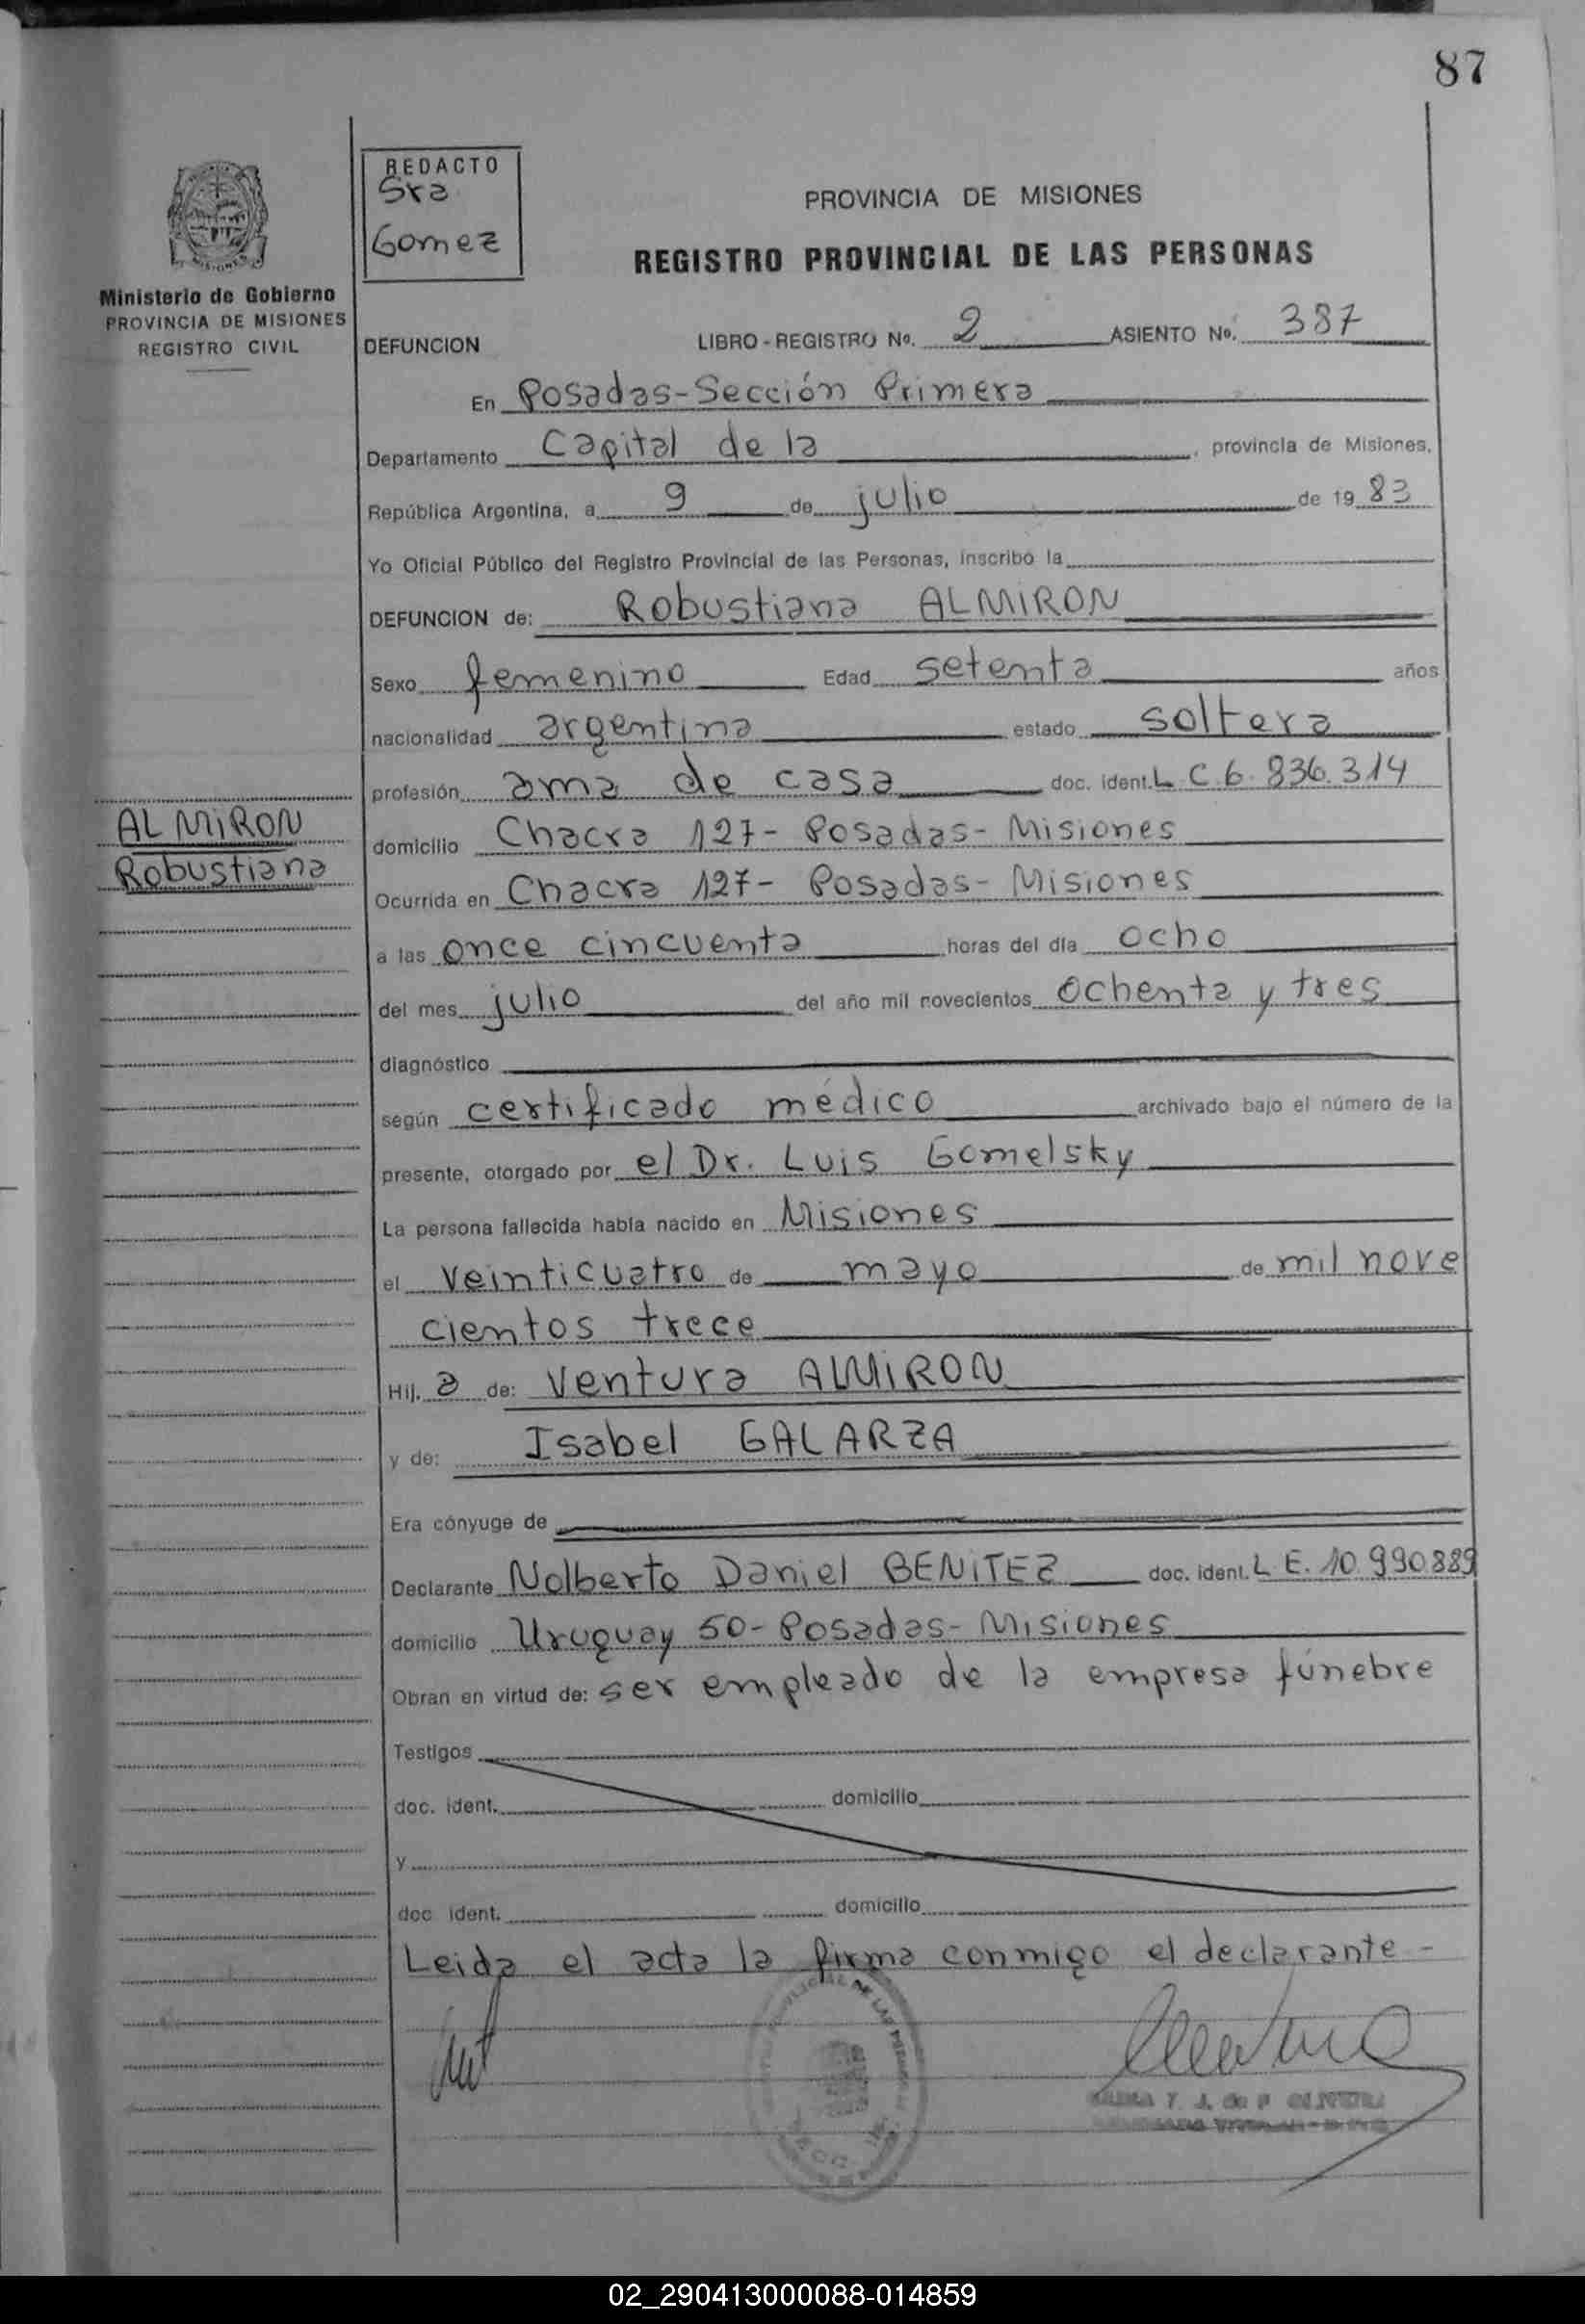 87
REDACTO
Sra
Gomez
PROVINCIA DE MISIONES
REGISTRO PROVINCIAL DE LAS PERSONAS
Ministerio de Gobierno
PROVINCIA DE MISIONES
REGISTRO CIVIL
DEFUNCION LIBRO - REGISTRO No. 2 ASIENTO No. 387
En Posadas-Sección Primera
Departamento Capital de la , provincia de Misiones,
República Argentina, a 9 de julio de 19 83
Yo Oficial Público del Registro Provincial de las Personas, inscribo la
DEFUNCION de: Robustiana ALMIRON
Sexo femenino Edad setenta años
nacionalidad argentina estado soltera
profesión ama de casa doc. ident. L C 6.836.314
ALMIRON
Robustiana
domicilio Chacra 127- Posadas- Misiones
Ocurrida en Chacra 127- Posadas- Misiones
a las once cincuenta horas del día ocho
del mes julio del año mil novecientos ochenta y tres
diagnóstico
según certificado médico archivado bajo el número de la
presente, otorgado por el Dr. Luis Gomelsky
La persona fallecida había nacido en Misiones
el veinticuatro de mayo de mil nove
cientos trece
Hij. a de: Ventura ALMIRON
y de: Isabel GALARZA
Era cónyuge de
Declarante Nolberto Daniel BENITEZ doc. ident. L E. 10.990.889
domicilio Uruguay 50- Posadas- Misiones
Obran en virtud de: ser empleado de la empresa fúnebre
Testigos
doc. ident. domicilio
y
doc ident. domicilio
Leida el acta la firma conmigo el declarante-
02_290413000088-014859